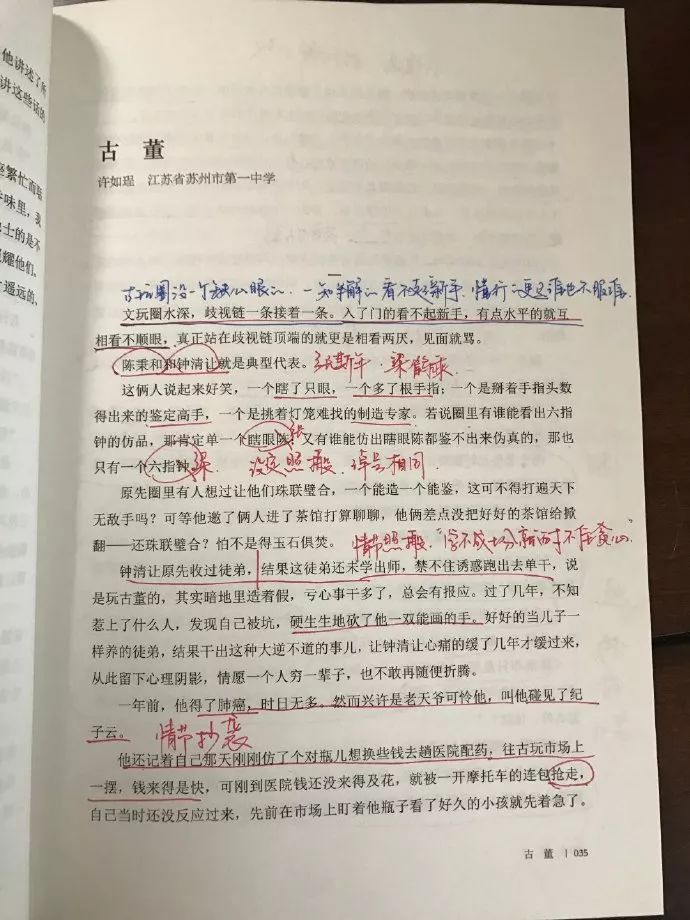 他讲述了所
讲这些话的
繁忙而琐
味里，我
士的是不
耀他们，
遥远的，
古 董
许如珵 江苏省苏州市第一中学
一
古玩圈没一个缺心眼的，一知半解的看不起新手，懂行的更是谁也不服谁。
文玩圈水深，歧视链一条接着一条。入了门的看不起新手，有点水平的就互
相看不顺眼，真正站在歧视链顶端的就更是相看两厌，见面就骂。
陈秉和和钟清让就是典型代表。
这俩人说起来好笑，一个瞎了只眼，一个多了根手指；一个是掰着手指头数
得出来的鉴定高手，一个是挑着灯笼难找的制造专家。若说圈里有谁能看出六指
钟的仿品，那肯定单一个瞎眼陈，又有谁能仿出瞎眼陈都鉴不出来伪真的，那也
张
只有一个六指钟。
梁 设定照搬，绰号相同
原先圈里有人想过让他们珠联璧合，一个能造一个能鉴，这可不得打遍天下
无敌手吗？可等他邀了俩人进了茶馆打算聊聊，他俩差点没把好好的茶馆给掀
翻——还珠联璧合？怕不是得玉石俱焚。
情节照搬，
钟清让原先收过徒弟，结果这徒弟还未学出师，禁不住诱惑跑出去单干，说
是玩古董的，其实暗地里造着假，亏心事干多了，总会有报应。过了几年，不知
惹上了什么人，发现自己被坑，硬生生地砍了他一双能画的手。好好的当儿子一
样养的徒弟，结果干出这种大逆不道的事儿，让钟清让心痛的缓了几年才缓过来，
从此留下心理阴影，情愿一个人穷一辈子，也不敢再随便折腾。
一年前，他得了肺癌，时日无多。然而兴许是老天爷可怜他，叫他碰见了纪
子云。
情节抄袭
他还记着自己那天刚刚仿了个对瓶儿想换些钱去趟医院配药，往古玩市场上
一摆，钱来得是快，可刚到医院钱还没来得及花，就被一开摩托车的连包抢走，
自己当时还没反应过来，先前在市场上盯着他瓶子看了好久的小孩就先着急了。
古 董 | 035